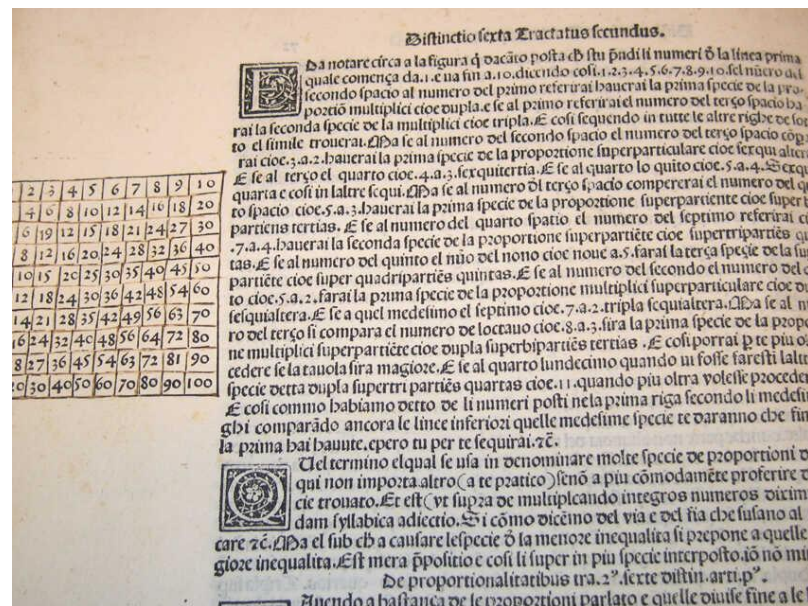 Distinctio sexta Tractatus secundus.
2 3 4 5 6 7 8 9 10
4 6 8 10 12 14 16 18 20
6 19 12 15 18 21 24 27 30
8 12 16 20 24 28 32 36 40
10 15 20 25 30 35 40 45 50
12 18 24 30 36 42 48 54 60
14 21 28 35 42 49 56 63 70
16 24 32 40 48 56 64 72 80
8 27 36 45 54 63 72 81 90
20 30 40 50 60 70 80 90 100
Da notare circa a la figura q̇ dacãto posta cħ stu p̃ndi li numeri ð la linea prima
quale comença da.1.e ua fin a.10.dicendo cosi.1.2.3.4.5.6.7.8.9.10.sel nũero del
secondo spacio al numero del primo referirai hauerai la prima specie de la pro-
portiõ multiplici cioe dupla.e se al primo referirai el numero del terço spacio ha
rai la seconda specie de la multiplici cioe tripla.E cosi sequendo in tutte le altre righe de sot
to el simile trouerai.Ma se al numero del secondo spacio el numero del terço spacio cõp
rai cioe.3.a.2.hauerai la prima specie de la proportione superparticulare cioe sexqui alter
E se al terço el quarto cioe.4.a.3.sexquitertia.E se al quarto lo quĩto cioe.5.a.4.Sexqu
quarta e cosi in laltre sequi.Ma se al numero ðl terço spacio compererai el numero del q
to spacio cioe.5.a.3.hauerai la prima specie de la proportione superpartiente cioe super b
partiens tertias. E se al numero del quarto spatio el numero del septimo referirai c
.7.a.4.hauerai la seconda specie de la proportione superpartiẽte cioe supertripartiẽs q
tas.E se al numero del quinto el nũo del nono cioe noue a.5.farai la terça specie de la su
partiẽte cioe super quadripartiẽs quintas.E se al numero del secondo el numero del
to cioe.5.a.2.farai la prima specie de la proportione multiplici superparticulare cioe du
sesquialtera.E se a quel medesimo el septimo cioe.7.a.2.tripla sequialtera.Ma se al n
ro del terço si compara el numero de loctauo cioe.8.a.3.sira la prima specie de la prop
ne multiplici superpartiẽte cioe dupla superbipartiẽs tertias .E cosi porrai ꝑ te piu o
cedere se la tauola sira magiore.E se al quarto lundecimo quando ui fosse faresti laltr
specie detta dupla supertri partiẽs quartas cioe.11.quando piu oltra volesse proceder
E cosi commo habiamo detto de li numeri posti nela prima riga secondo li medesi
ghi comparãdo ancora le linee inferiori quelle medesime specie te daranno che fin
la prima hai hauute.epero tu per te sequirai.⁊c̃.
Uel termino elqual se usa in denominare molte specie de proportioni d
qui non importa.altro(a te pratico)senõ a piu cõmodamẽte proferire d
cie trouato.Et est(vt supra de multiplcando integros numeros dixim
dam syllabica adiectio.Si cõmo dicẽmo del via e del fia che susano al
care ⁊c̃.Ma el sub cħ a causare lespecie ð la menore inequalita si prepone a quelle
giore inequalita.Est mera p̃positio e cosi li super in piu specie interposto.iõ nõ mu
De proportionalitatibus tra.2ꝰ.sexte distin.arti.pꝰ.
Auendo a bastança de le proportioni parlato e quelle diuise fine a le